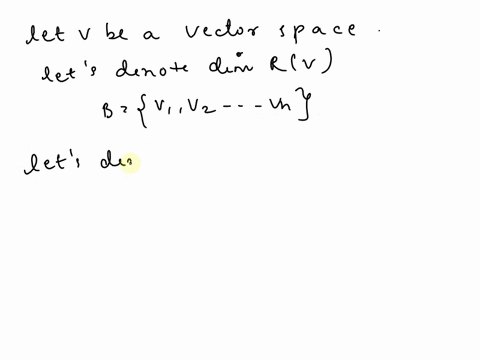 let v be a vector space .
let's denote dim R(V)
B = { V1, V2 --- Vn }
let's de